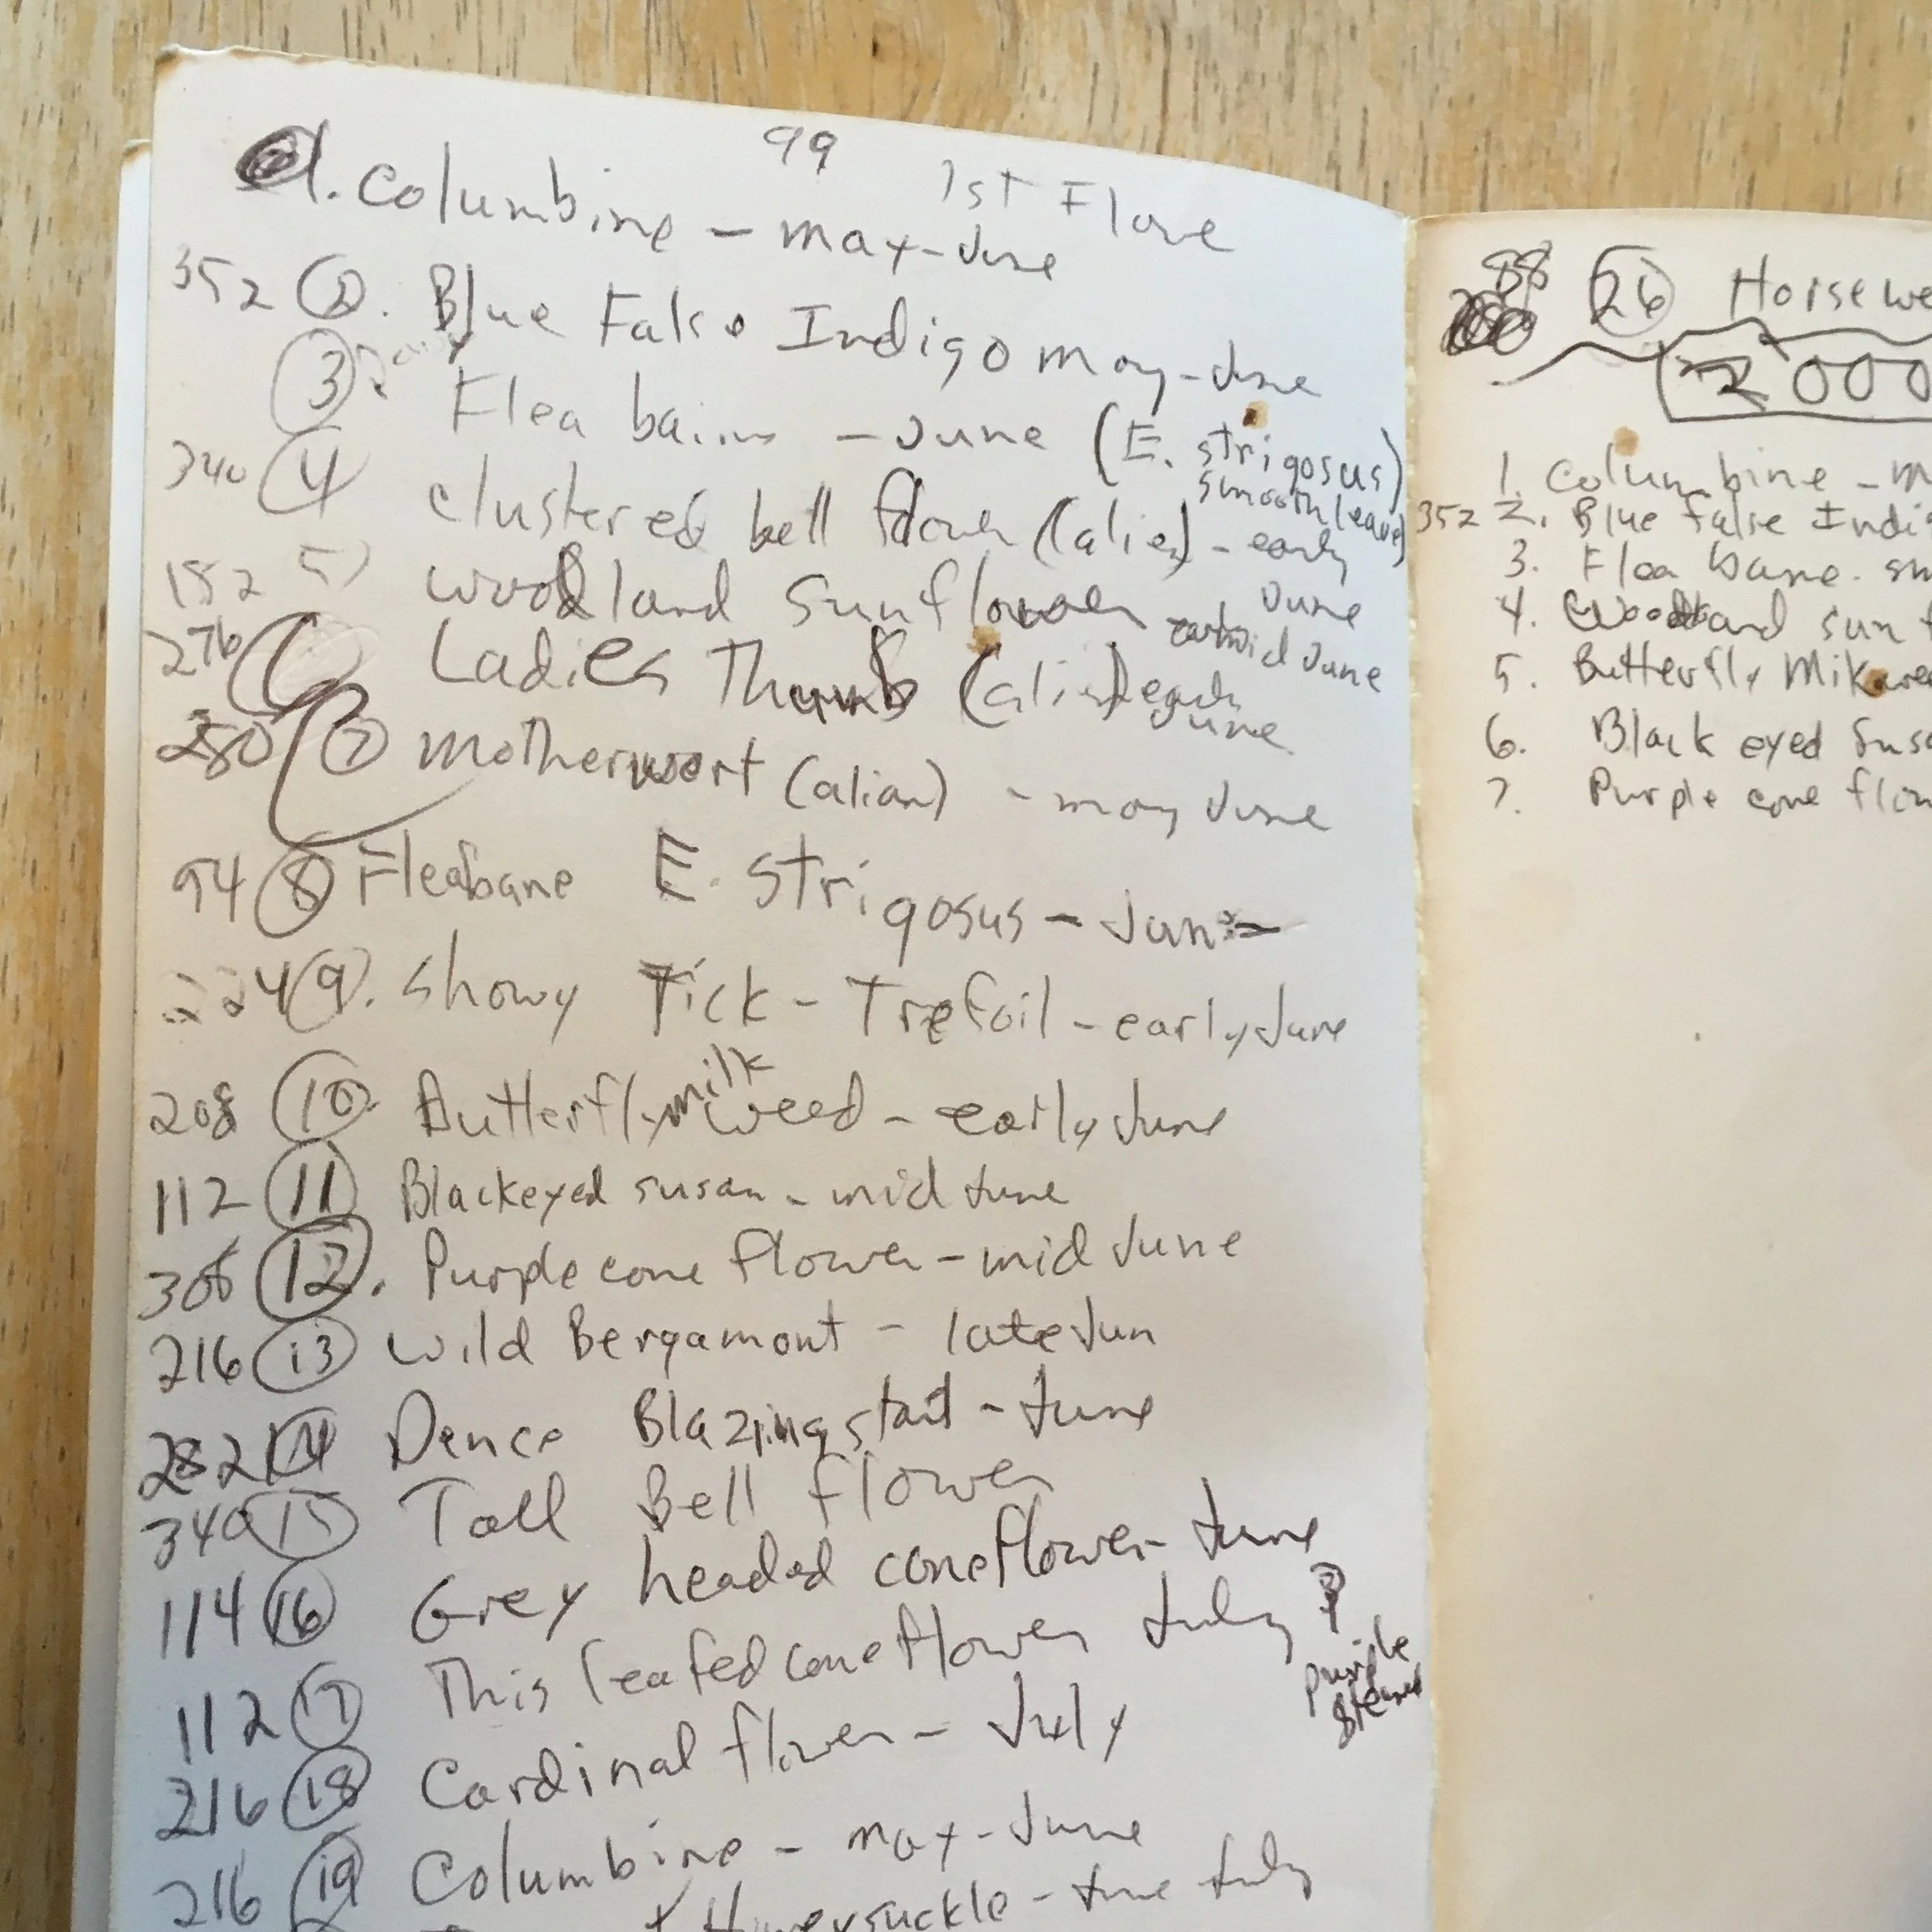 99 1st Flore
1. Columbine - may-June
352 2. Blue False Indigo may-June
3 Flea - June (E. strigosus)
smooth leave)
340 4 clustered bell flower (alien) - early
June
152 5) woodland sunflower mid June
276 Ladies Thumb (alien) early
June
280 7 motherwort (alian) - may June
94 8 Fleabane E. strigosus - Jun
224 9. Showy Tick-Trefoil - early June
208 10. Butterfly milk weed - early June
112 11 Blackeyed susan - mid June
306 12. Purple cone flower - mid June
216 13 Wild Bergamont - late Jun
282 14 Dence Blazing - June
340 15 Tall Bell flower
114 16 Grey headed coneflower - June
112 17 This leafed cone flower July ?
purple
216 18 Cardinal flower - July
216 19 Columbine - may-June
Honeysuckle - June July
88 26 Horsewe
2000
1. Columbine - m
352 2. Blue false Indig
3. Flea bane. sm
4. Woodland sun f
5. Butterfly Mikwee
6. Black eyed Susa
7. Purple cone flow